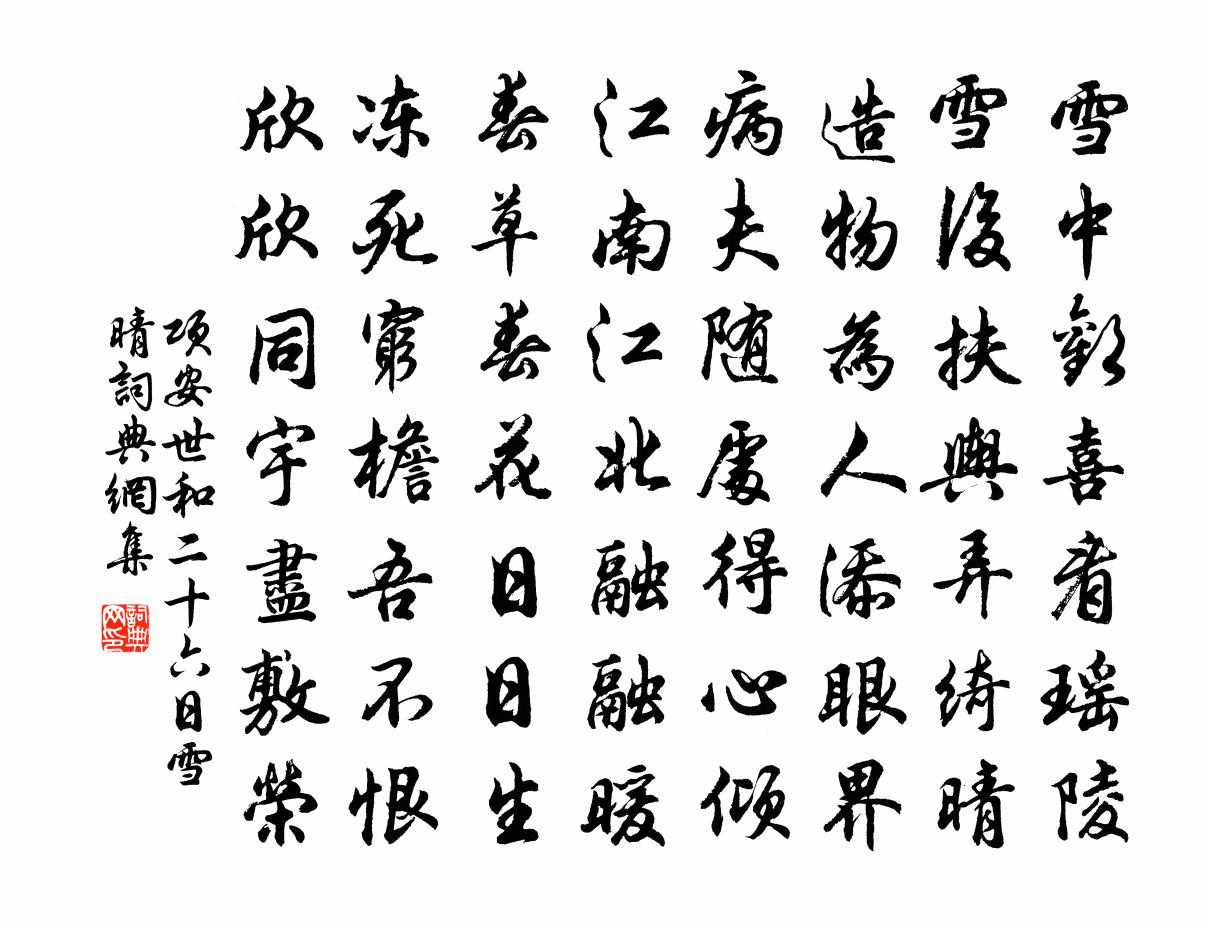 雪中歡喜看瑶陵
雪後扶輿弄綺晴
造物為人添眼界
病夫随處得心傾
江南江北融融暖
春草春花日日生
凍死窮檐吾不恨
欣欣同宇盡敷榮
項安世和二十六日雪
晴詞典網集
詞典网印